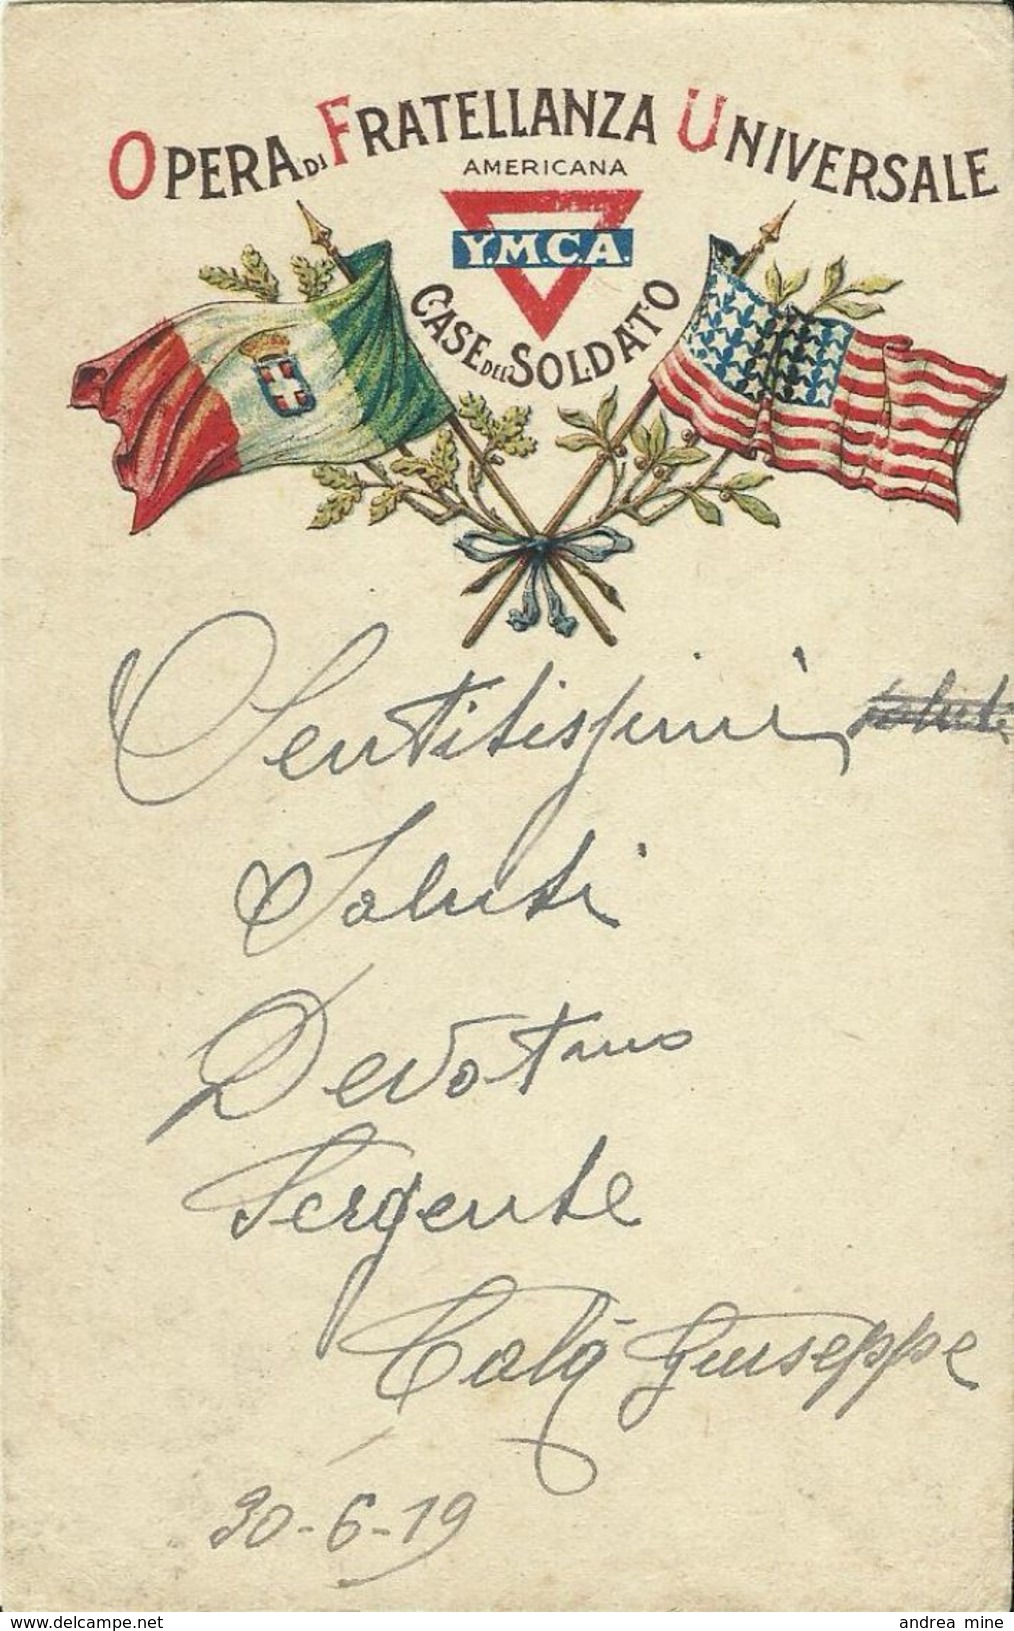 OPERA DI FRATELLANZA UNIVERSALE
AMERICANA
Y.M.C.A.
CASE DEL SOLDATO
Sentitissimi saluti
Saluti
Devotmo
Sergente
Calà Giuseppe
30-6-19
www.delcampe.net
andrea mine